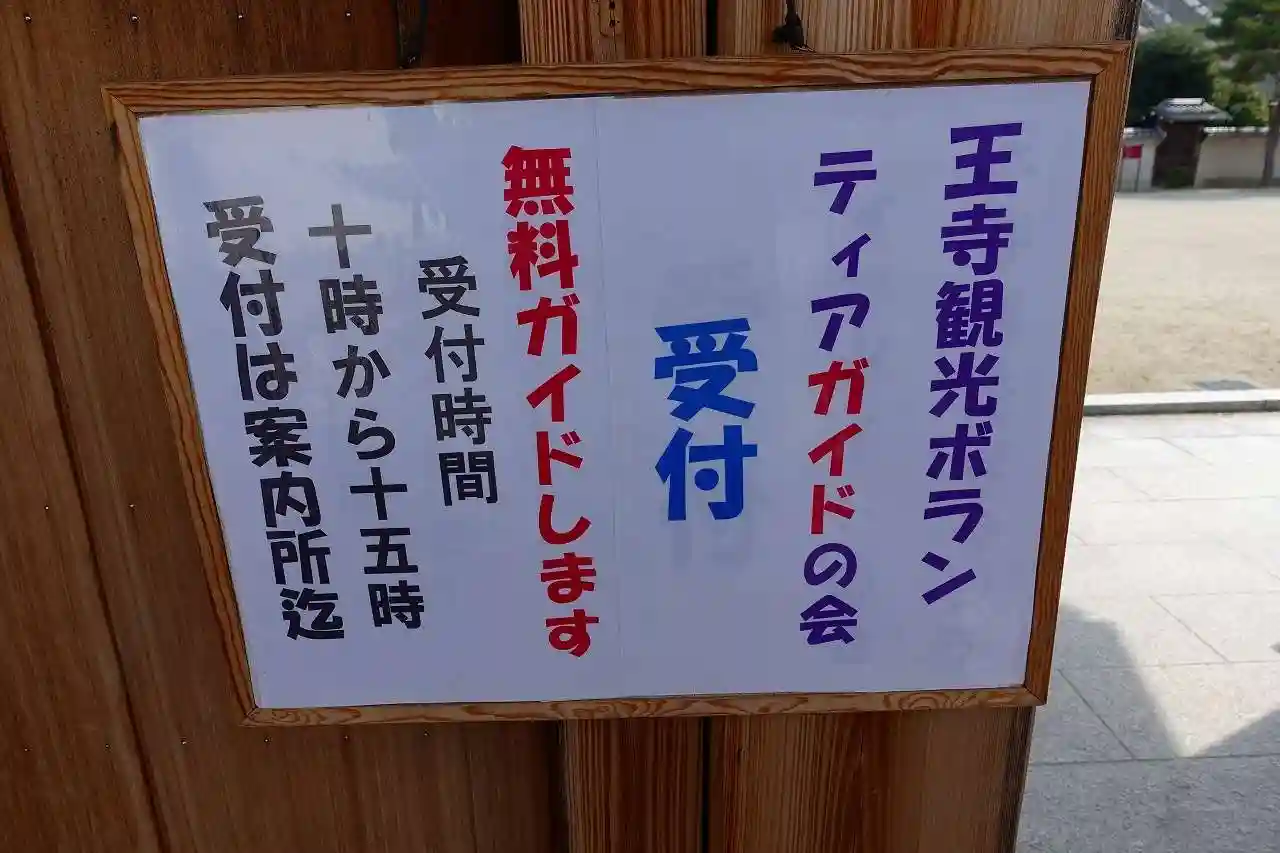 王寺観光ボラン
ティアガイドの会
受付
無料ガイドします
受付時間
十時から十五時
受付は案内所迄